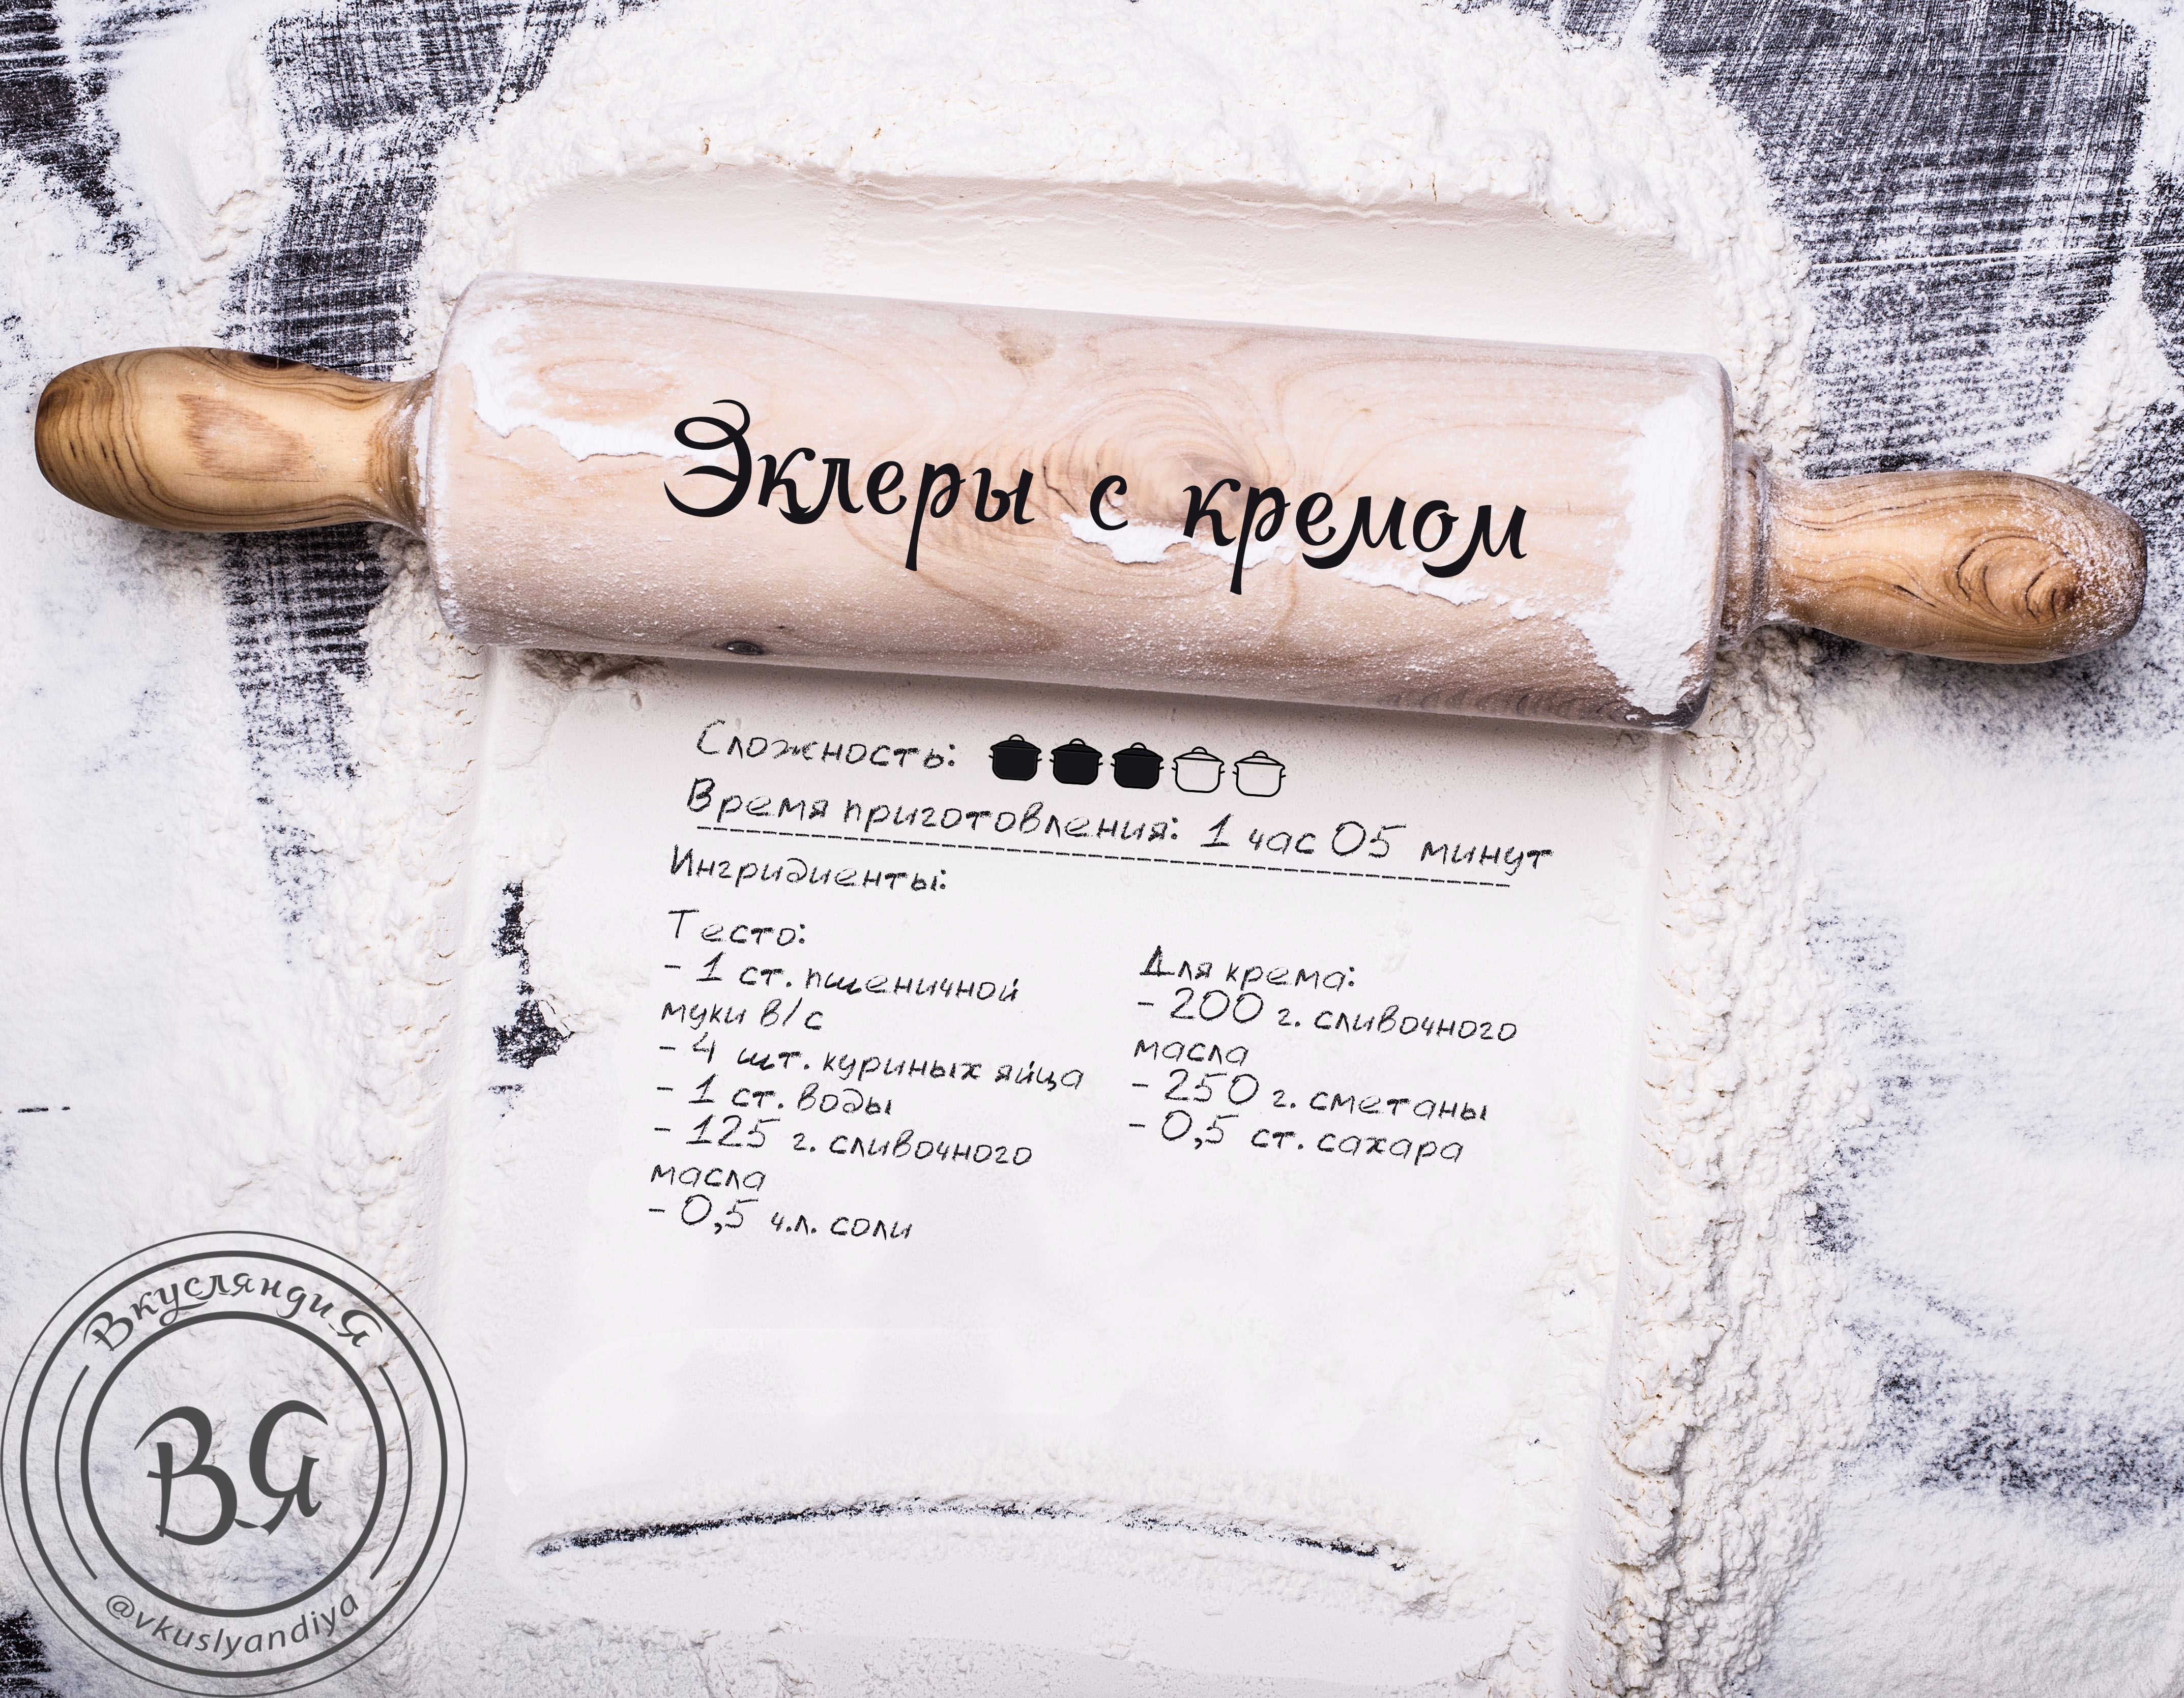 Эклеры с кремом
Сложность:
Время приготовления: 1 час 05 минут
Ингридиенты:
Тесто:
- 1 ст. пшеничной
муки в/с
- 4 шт. куриных яйца
- 1 ст. воды
- 125 г. сливочного
масла
- 0,5 ч.л. соли
Для крема:
- 200 г. сливочного
масла
- 250 г. сметаны
- 0,5 ст. сахара
ВкусляндиЯ
ВЯ
@vkuslyandiya